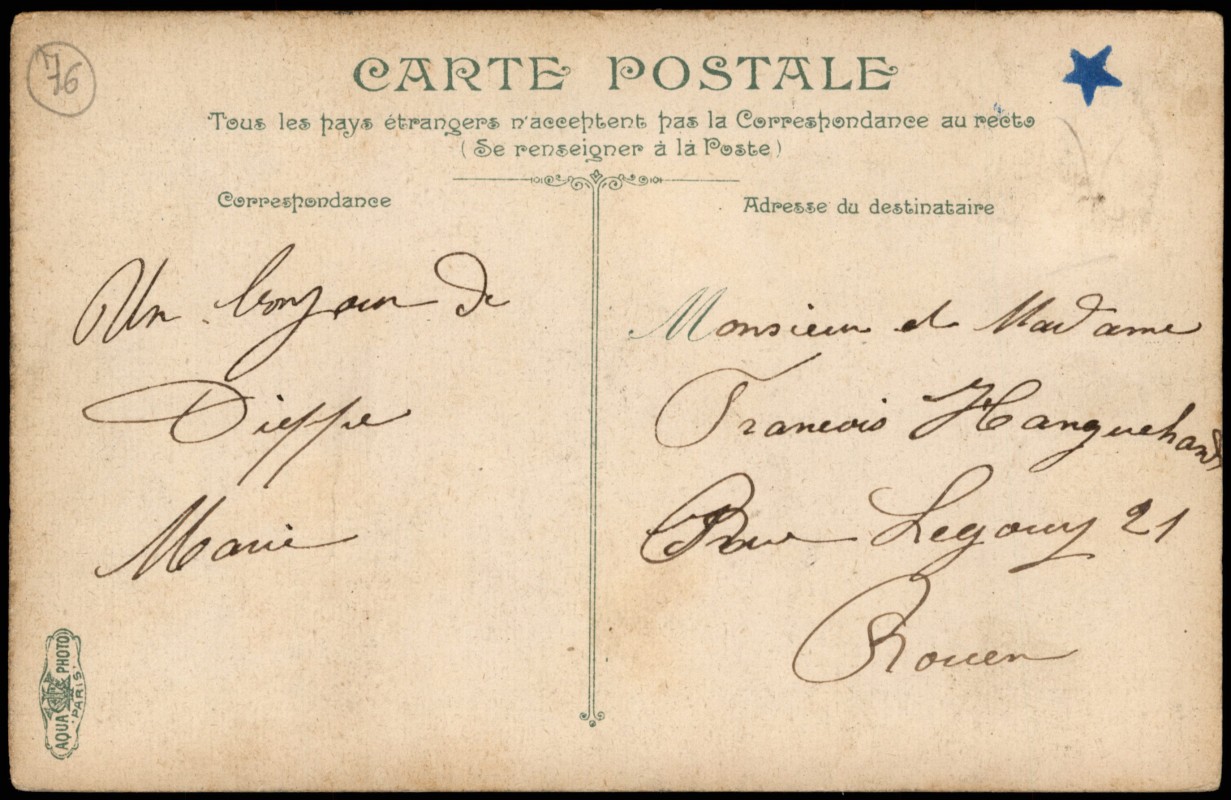 76
CARTE POSTALE
Tous les pays étrangers n'acceptent pas la Correspondance au recto
(Se renseigner à la Poste)
Correspondance
Adresse du destinataire
Un bonjour de
Dieppe
Marie
Monsieur et Madame
Francois
Rue Legouy 21
Rouen
AQUA PHOTO
PARIS